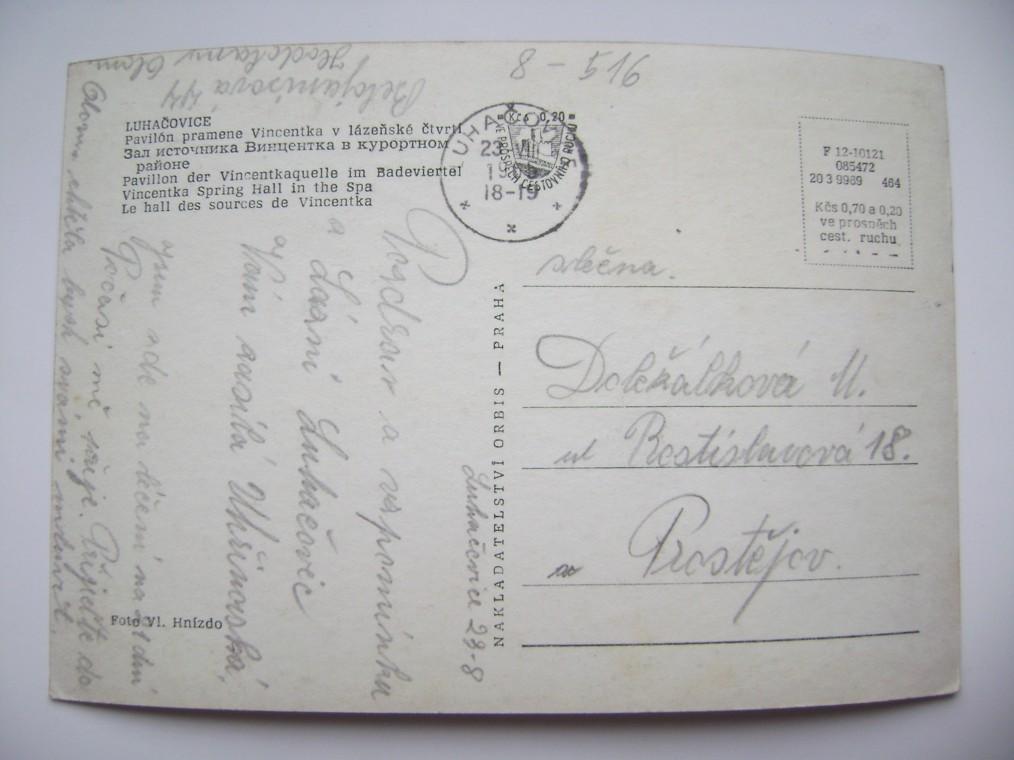 8 - 516
LUHAČOVICE
Pavilón pramene Vincentka v lázeňské čtvrti
Зал источника Винцентка в курортном
районе
Pavillon der Vincentkaquelle im Badeviertel
Vincentka Spring Hall in the Spa
Le hall des sources de Vincentka
Kčs 0,20
VE PROSPĚCH CESTOVNÍHO RUCHU
23. VIII
18-19
F 12-10121
085472
20 3 9969 464
Kčs 0,70 a 0,20
ve prospěch
cest. ruchu
slečna.
Doležálková M.
ul Rostislavová 18.
Prostějov.
NAKLADATELSTVÍ ORBIS — PRAHA
Luhačovice 23-8
Pozdrav a vzpomínku
a Lázní Luhačovic
Vám zasílá Uhřinovská,
jsem zde na léčení na 21 dní
Počasí mě přeje. Přijeďte do
Olomouc
Foto Vl. Hnízdo
Belojanisová 44
Hodolany Olom.